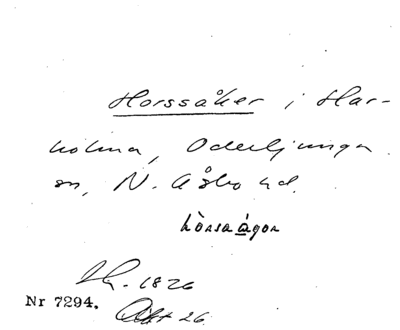 Horssåker i Har-
holma, Oderljunga
sn, N. Åsbo hd.
hòrsaågor
1826
Nr 7294. Akt 26